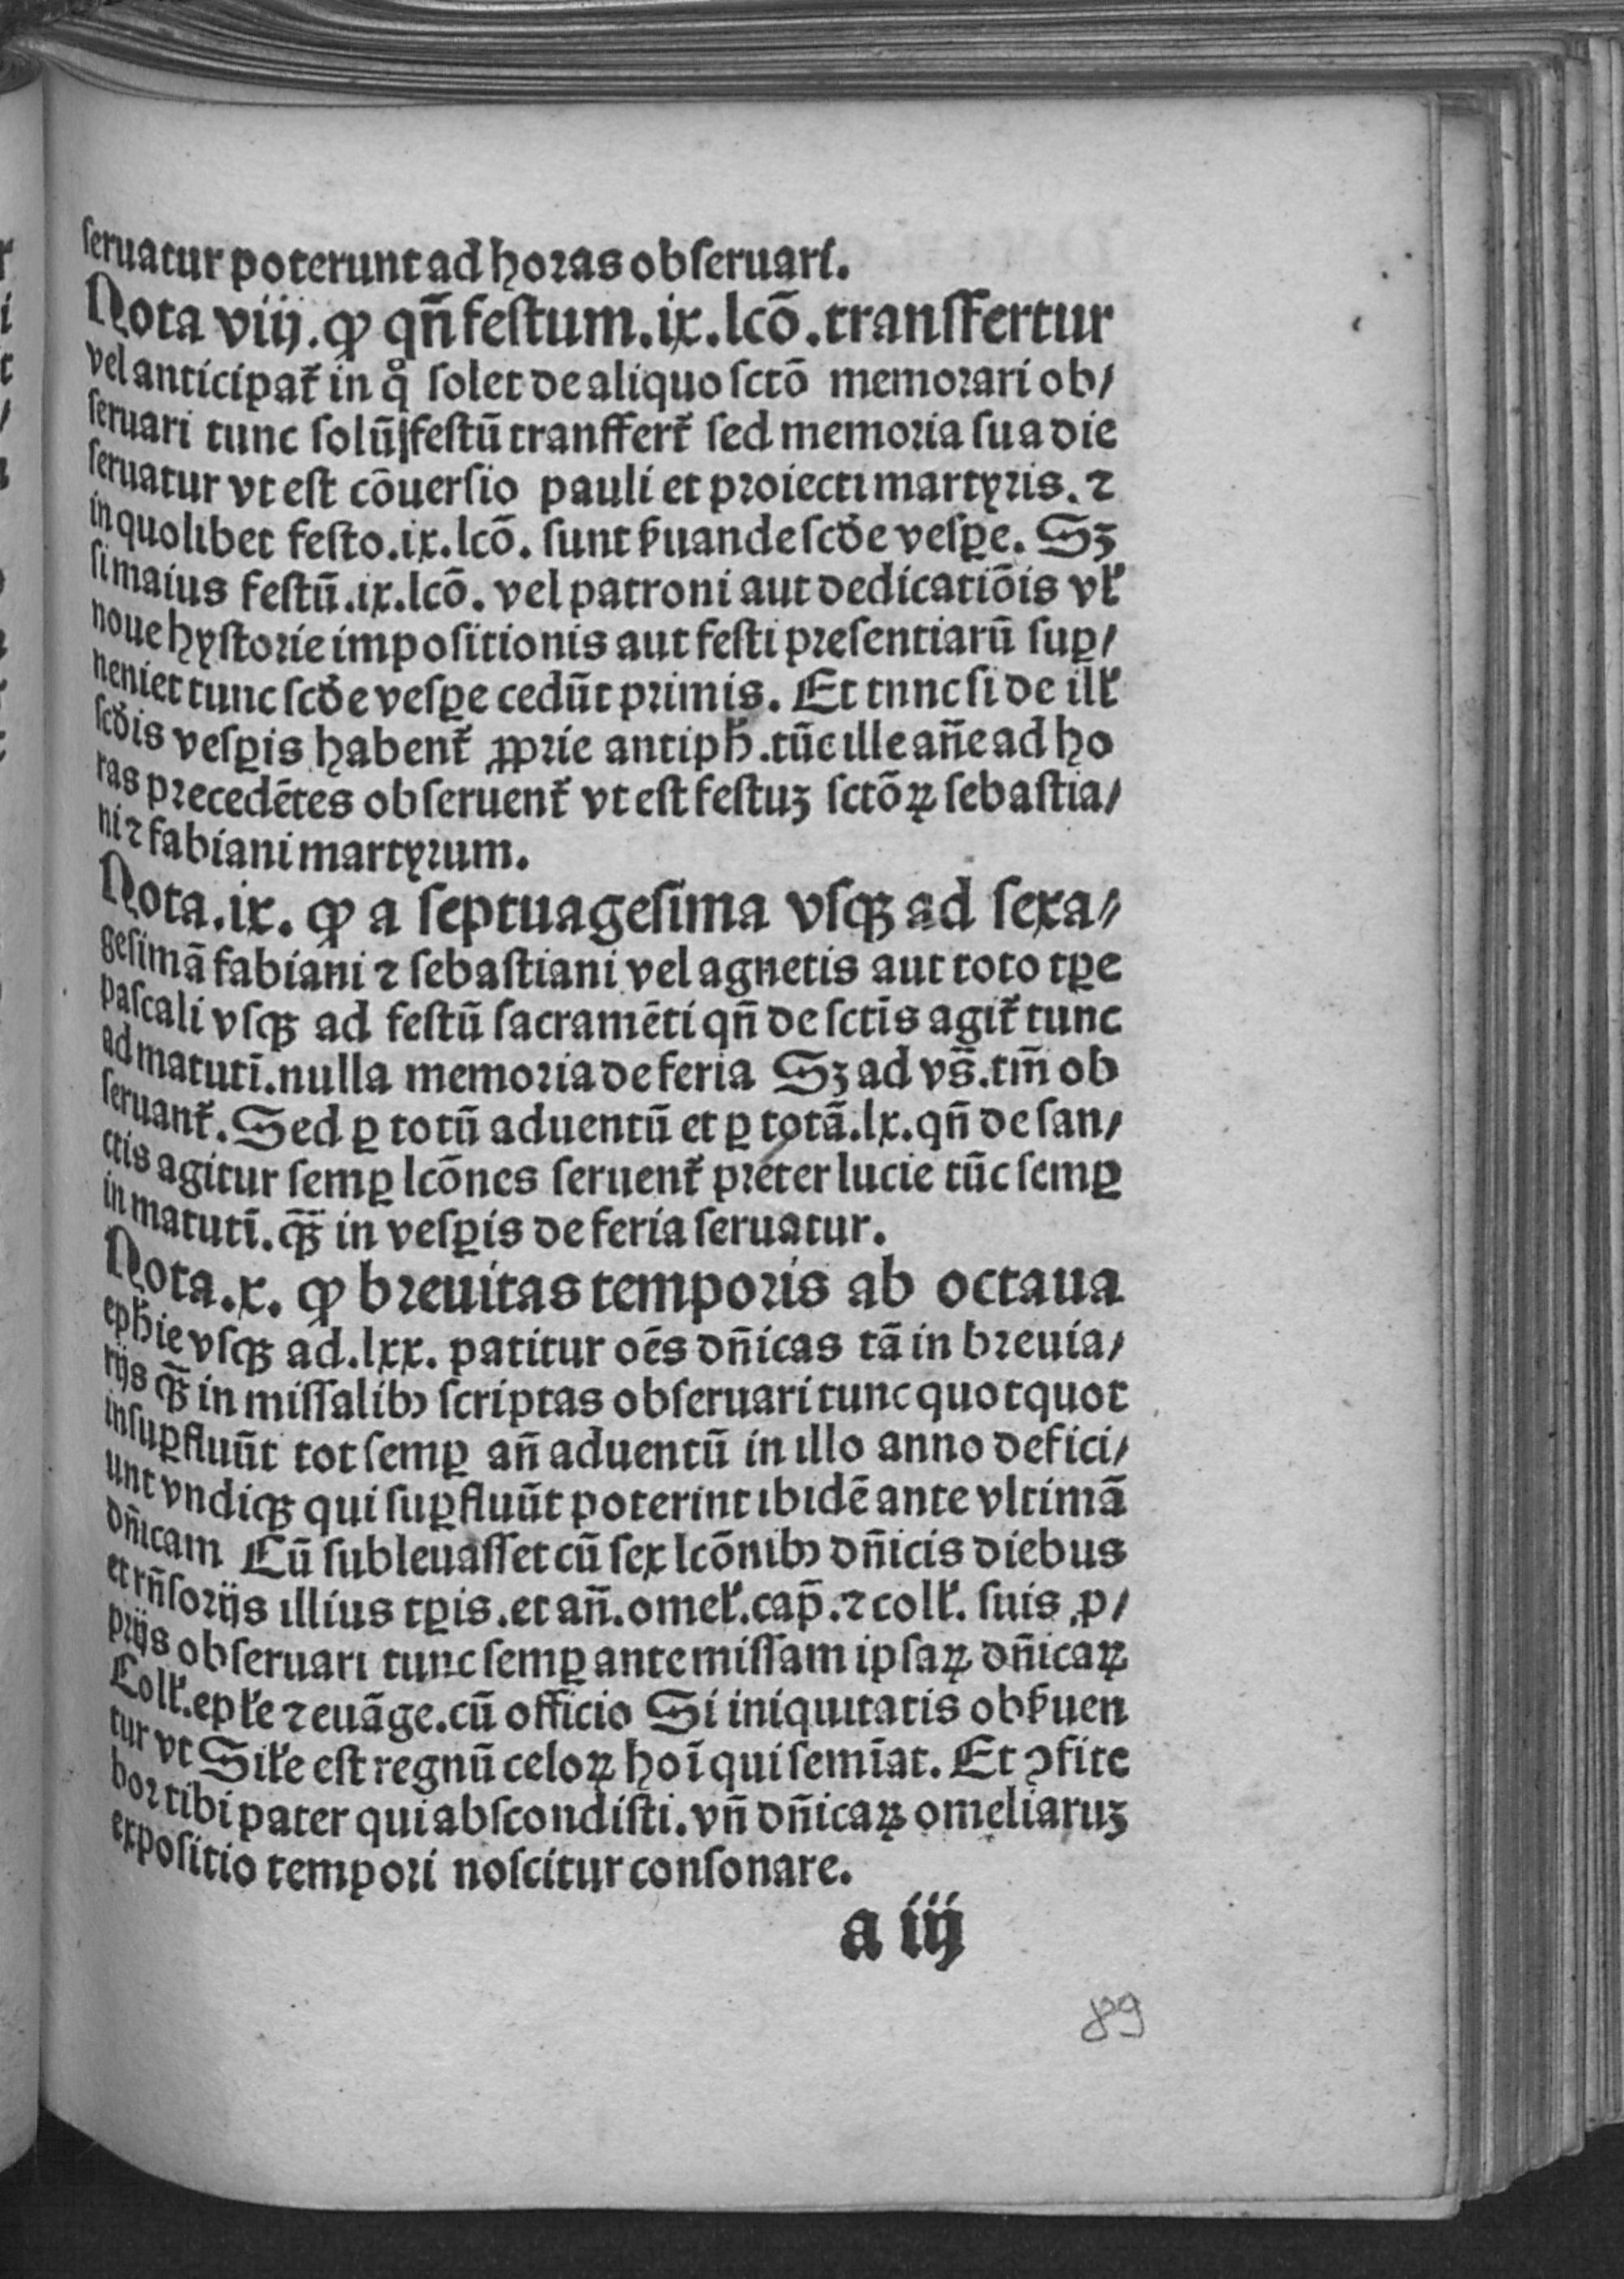 ſeruatur poterunt ad horas obſeruari.
Nota viij. ꝙ qn̄ feſtum.ix.lcō.tranſfertur
vel anticipat᷑ in qͦ ſolet de aliquo ſctō memorari ob/
ſeruari tunc ſolū feſtū tranſfert᷑ ſed memoria ſua die
ſeruatur vt eſt cōuerſio pauli et proiecti martyris. ⁊
in quolibet feſto.ix.lcō. ſunt ẜuande ſcďe veſꝑe. Sꝫ
ſi maius feſtū.ix.lcō. vel patroni aut dedicatiōis vł
noue hyſtorie impoſitionis aut feſti preſentiarū ſuꝑ/
neniet tunc ſcďe veſꝑe cedūt primis. Et tnnc ſi de ilł
ſcďis veſꝑis habent᷑ ꝓprie antiph̄.tūc ille an̄e ad ho
ras precedētes obſeruent᷑ vt eſt feſtuꝫ ſctōꝝ ſebaſtia/
ni ⁊ fabiani martyrum.
Nota.ix. ꝙ a ſeptuageſima vſqꝫ ad ſexa/
geſimā fabiani ⁊ ſebaſtiani vel agnetis aut toto tꝑe
paſcali vſqꝫ ad feſtū ſacramēti qn̄ de ſctīs agit᷑ tunc
ad matutī.nulla memoria de feria Sꝫ ad vs̄.tm̄ ob
ſeruant᷑. Sed ꝑ totū aduentū et ꝑ totā.lx.qn̄ de ſan/
ctis agitur ſemꝑ lcōnes ſeruent᷑ preter lucie tūc ſemꝑ
in matutī. qꝫ̄ in veſꝑis de feria ſeruatur.
Nota.x. ꝙ breuitas temporis ab octaua
eph̄ie vſqꝫ ad.lxx. patitur oēs dn̄icas tā in breuia/
rijs qꝫ̄ in miſſalibꝰ ſcriptas obſeruari tunc quotquot
inſuꝑfluūt tot ſemꝑ an̄ aduentū in illo anno defici/
unt vndiqꝫ qui ſuꝑfluūt poterint ibidē ante vltimā
dn̄icam Cū ſubleuaſſet cū ſex lcōnibꝰ dn̄icis diebus
et rn̄ſorijs illius tꝑis.et an̄.omeł.cap̄.⁊ colł. ſuis ꝓ/
prijs obſeruari tunc ſemꝑ ante miſſam ipſaꝝ dn̄icaꝝ
Colł.epłe ⁊ euāge.cū officio Si iniquitatis obẜuen
tur vt Siłe eſt regnū celoꝝ hoī qui ſemīat. Et ꝯfite
bor tibi pater qui abſcondiſti.vn̄ dn̄icaꝝ omeliaruꝫ
expoſitio tempori noſcitur conſonare.
a iij
89